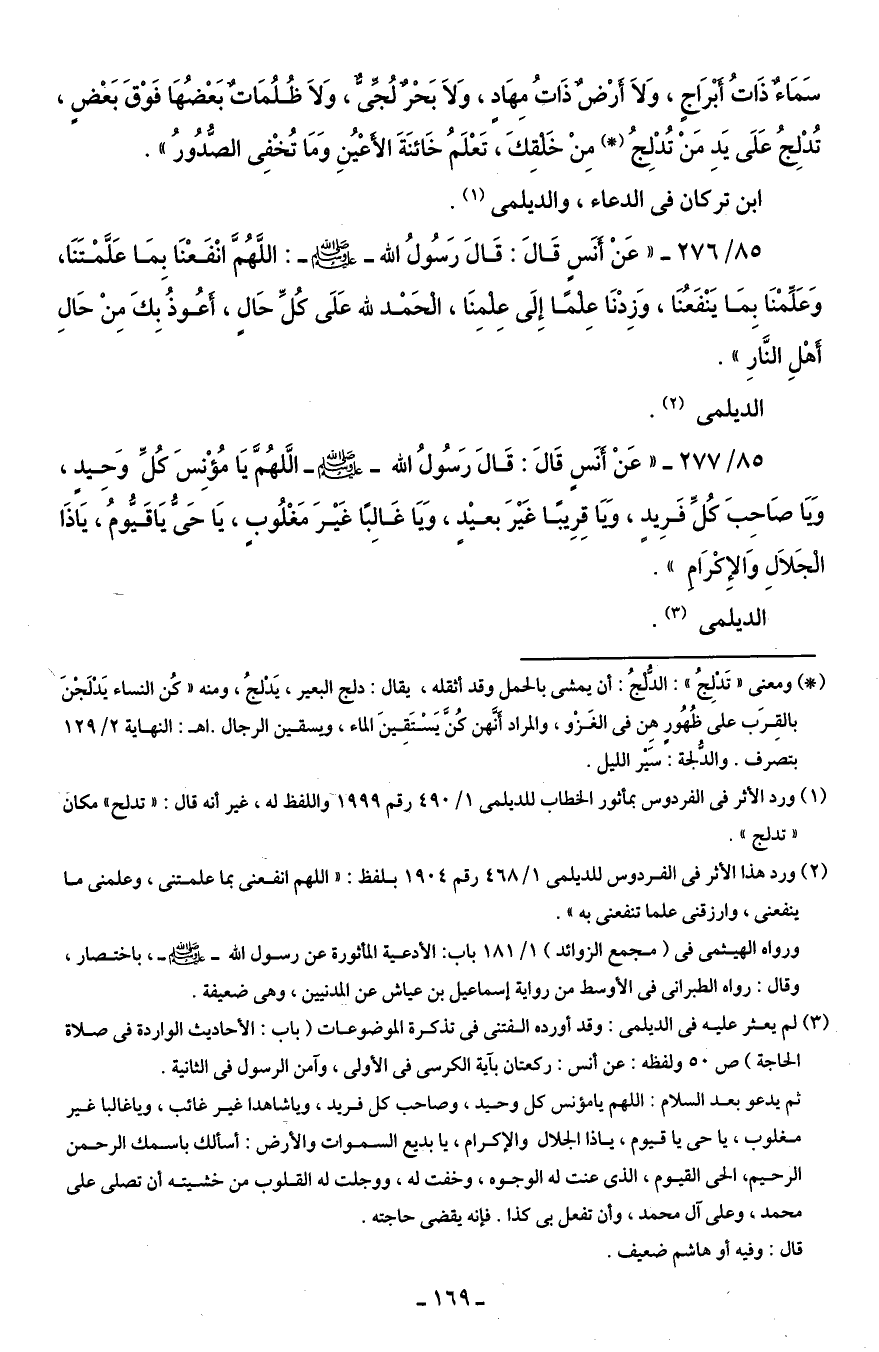 سَمَاءٌ ذَاتُ أَبْرَاجٍ ، وَلاَ أَرْضٌ ذَاتُ مِهَادٍ ، وَلاَ بَحْرٌ لُجِّىٌّ ، وَلاَ ظُلُمَاتٌ بَعْضُهَا فَوْقَ بَعْضٍ ،
تُدْلِجُ عَلَى يَدِ مَنْ تُدْلِجُ (*) مِنْ خَلْقِكَ ، تَعْلَمُ خَائِنَةَ الأَعْيُنِ وَمَا تُخْفِى الصُّدُورُ » .
ابن تركان فى الدعاء ، والديلمى (١) .
٨٥/ ٢٧٦ ـ « عَنْ أَنَسٍ قَالَ : قَالَ رَسُولُ الله ـ ﷺ ـ : اللَّهُمَّ انْفَعْنَا بِمَا عَلَّمْتَنَا،
وَعَلِّمْنَا بِمَا يَنْفَعُنَا ، وَزِدْنَا عِلْمًا إِلَى عِلْمِنَا ، الْحَمْد لله عَلَى كُلِّ حَالٍ ، أَعُوذُ بِكَ مِنْ حَالِ
أَهْلِ النَّارِ » .
الديلمى (٢) .
٨٥/ ٢٧٧ ـ « عَنْ أَنَسٍ قَالَ : قَالَ رَسُولُ الله ـ ﷺ ـ الَّلهُمَّ يَا مُؤْنِسَ كُلِّ وَحِيدٍ ،
وَيَا صَاحِبَ كُلِّ فَرِيدٍ ، وَيَا قِرِيبًا غَيْرَ بعيْدٍ ، وَيَا غَالِبًا غَيْرَ مَغْلُوبٍ ، يَا حَىُّ يَاقَيُّومُ ، يَاذَا
الْجَلَالَ وَالإِكْرَامِ » .
الديلمى (٣) .
(*) ومعنى « تَدْلِجُ » : الدُّلْجُ : أن يمشى بالحمل وقد أثقله ، يقال : دلج البعير ، يَدْلجُ ، ومنه « كُن النساء يَدْلَجْنَ
بالقِرَب على ظُهُورٍ هِن فى الغَزْو ، والمراد أنَّهن كُنَّ يَسْتَقِينَ الماء ، ويسقين الرجال .اهـ : النهاية ٢/ ١٢٩
بتصرف . والدُّلجة : سَيْر الليل .
(١) ورد الأثر فى الفردوس بمأثور الخطاب للديلمى ١/ ٤٩٠ رقم ١٩٩٩ واللفظ له ، غير أنه قال : « تدلح» مكان
« تدلج » .
(٢) ورد هذا الأثر فى الفردوس للديلمى ١/ ٤٦٨ رقم ١٩٠٤ بلفظ : « اللهم انفعنى بما علمتنى ، وعلمنى ما
ينفعنى ، وارزقنى علما تنفعنى به » .
ورواه الهيثمى فى ( مجمع الزوائد ) ١/ ١٨١ باب: الأدعية المأثورة عن رسول الله ـ ﷺ ـ ، باختصار ،
وقال : رواه الطبرانى فى الأوسط من رواية إسماعيل بن عياش عن المدنيين ، وهى ضعيفة .
(٣) لم يعثر عليه فى الديلمى : وقد أورده الفتنى فى تذكرة الموضوعات ( باب : الأحاديث الواردة فى صلاة
الحاجة ) ص ٥٠ ولفظه : عن أنس : ركعتان بآية الكرسى فى الأولى ، وآمن الرسول فى الثانية .
ثم يدعو بعد السلام : اللهم يامؤنس كل وحيد ، وصاحب كل فريد ، وياشاهدا غير غائب ، وياغالبا غير
مغلوب ، يا حى يا قيوم ، ياذا الجلال والإكرام ، يا بديع السموات والأرض : أسألك باسمك الرحمن
الرحيم، الحى القيوم ، الذى عنت له الوجوه ، وخفت له ، ووجلت له القلوب من خشيته أن تصلى على
محمد ، وعلى آل محمد ، وأن تفعل بى كذا . فإنه يقضى حاجته .
قال : وفيه أو هاشم ضعيف .
ـ ١٦٩ ـ